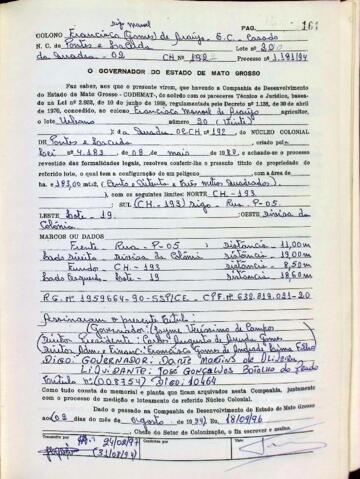 digo Manoel
PAG. 161
COLONO Francisco (Gomes) de Araújo, B.C. - Casado
N. C. de Pontes e Lacerda Lote nº 20
da Quadra - 02 CH. Nº 192 Processo nº 1.181/94
O GOVERNADOR DO ESTADO DE MATO GROSSO
Faz saber, aos que o presente virem, que havendo a Companhia de Desenvolvimento
do Estado de Mato Grosso - CODEMAT, de acôrdo com os pareceres Técnico e Jurídico, basea-
dos na Lei nº 2.922, de 10 de junho de 1958, regulamentada pelo Decreto nº 1.138, de 30 de abril
de 1970, concedido, ao colono Francisco Manoel de Araújo agricultor,
o lote Urbano número 20 (Vinte)
da Quadra 02 CH nº 192 do NÚCLEO COLONIAL
de Pontes e Lacerda criado pela
Lei nº 4.183 de 08 de maio de 1980, e achando-se o processo
revestido das formalidades legais, resolvem conferir-lhe o presente título de propriedade do
referido lote, o qual tem a configuração de um polígono com a área de
ha e 183,00 mts2, (Cento e Oitenta e Três metros Quadrados)
), com os seguintes limites: NORTE CH - 193
SUL (CH - 193) digo - Rua - P-05
LESTE Lote - 19 OESTE Divisa da
Colônia
MARCOS OU DADOS
Frente Rua - P-05 Distância - 11,00m
Lado Direito - Divisa da Colônia Distância - 19,00m
Fundos - CH - 193 Distância - 8,50m
Lado Esquerdo - Lote - 19 Distância - 18,60m
R.G. nº 1959664-90-SSP/CE - CPF nº 632.819.031-20
Assinaram o presente título:
Governador: Jayme Veríssimo de Campos
Diretor Presidente: Carlos Augusto de Arruda Gomes
Diretor Adm e Financ: Francisco Gomes de Andrade Lima Filho
DIGO: GOVERNADOR: DANTE MARTINS DE OLIVEIRA
LIQUIDANTE: JOSÉ GONÇALVES BOTELHO do Prado
Título nº (008754) DIGO: 10464
Como tudo consta do memorial e planta que ficam arquivados nesta Companhia, juntamente
com o processo de medição e loteamento do referido Núcleo Colonial.
Dado e passado na Companhia de Desenvolvimento do Estado de Mato Grosso
aos (02 dias do mês agosto de 1994) 18/09/96
Chefe do Setor de Colonização, o fiz escrever e assino.
Transcrito por 24/09/97 Conferido por Visto
(31/08/94)